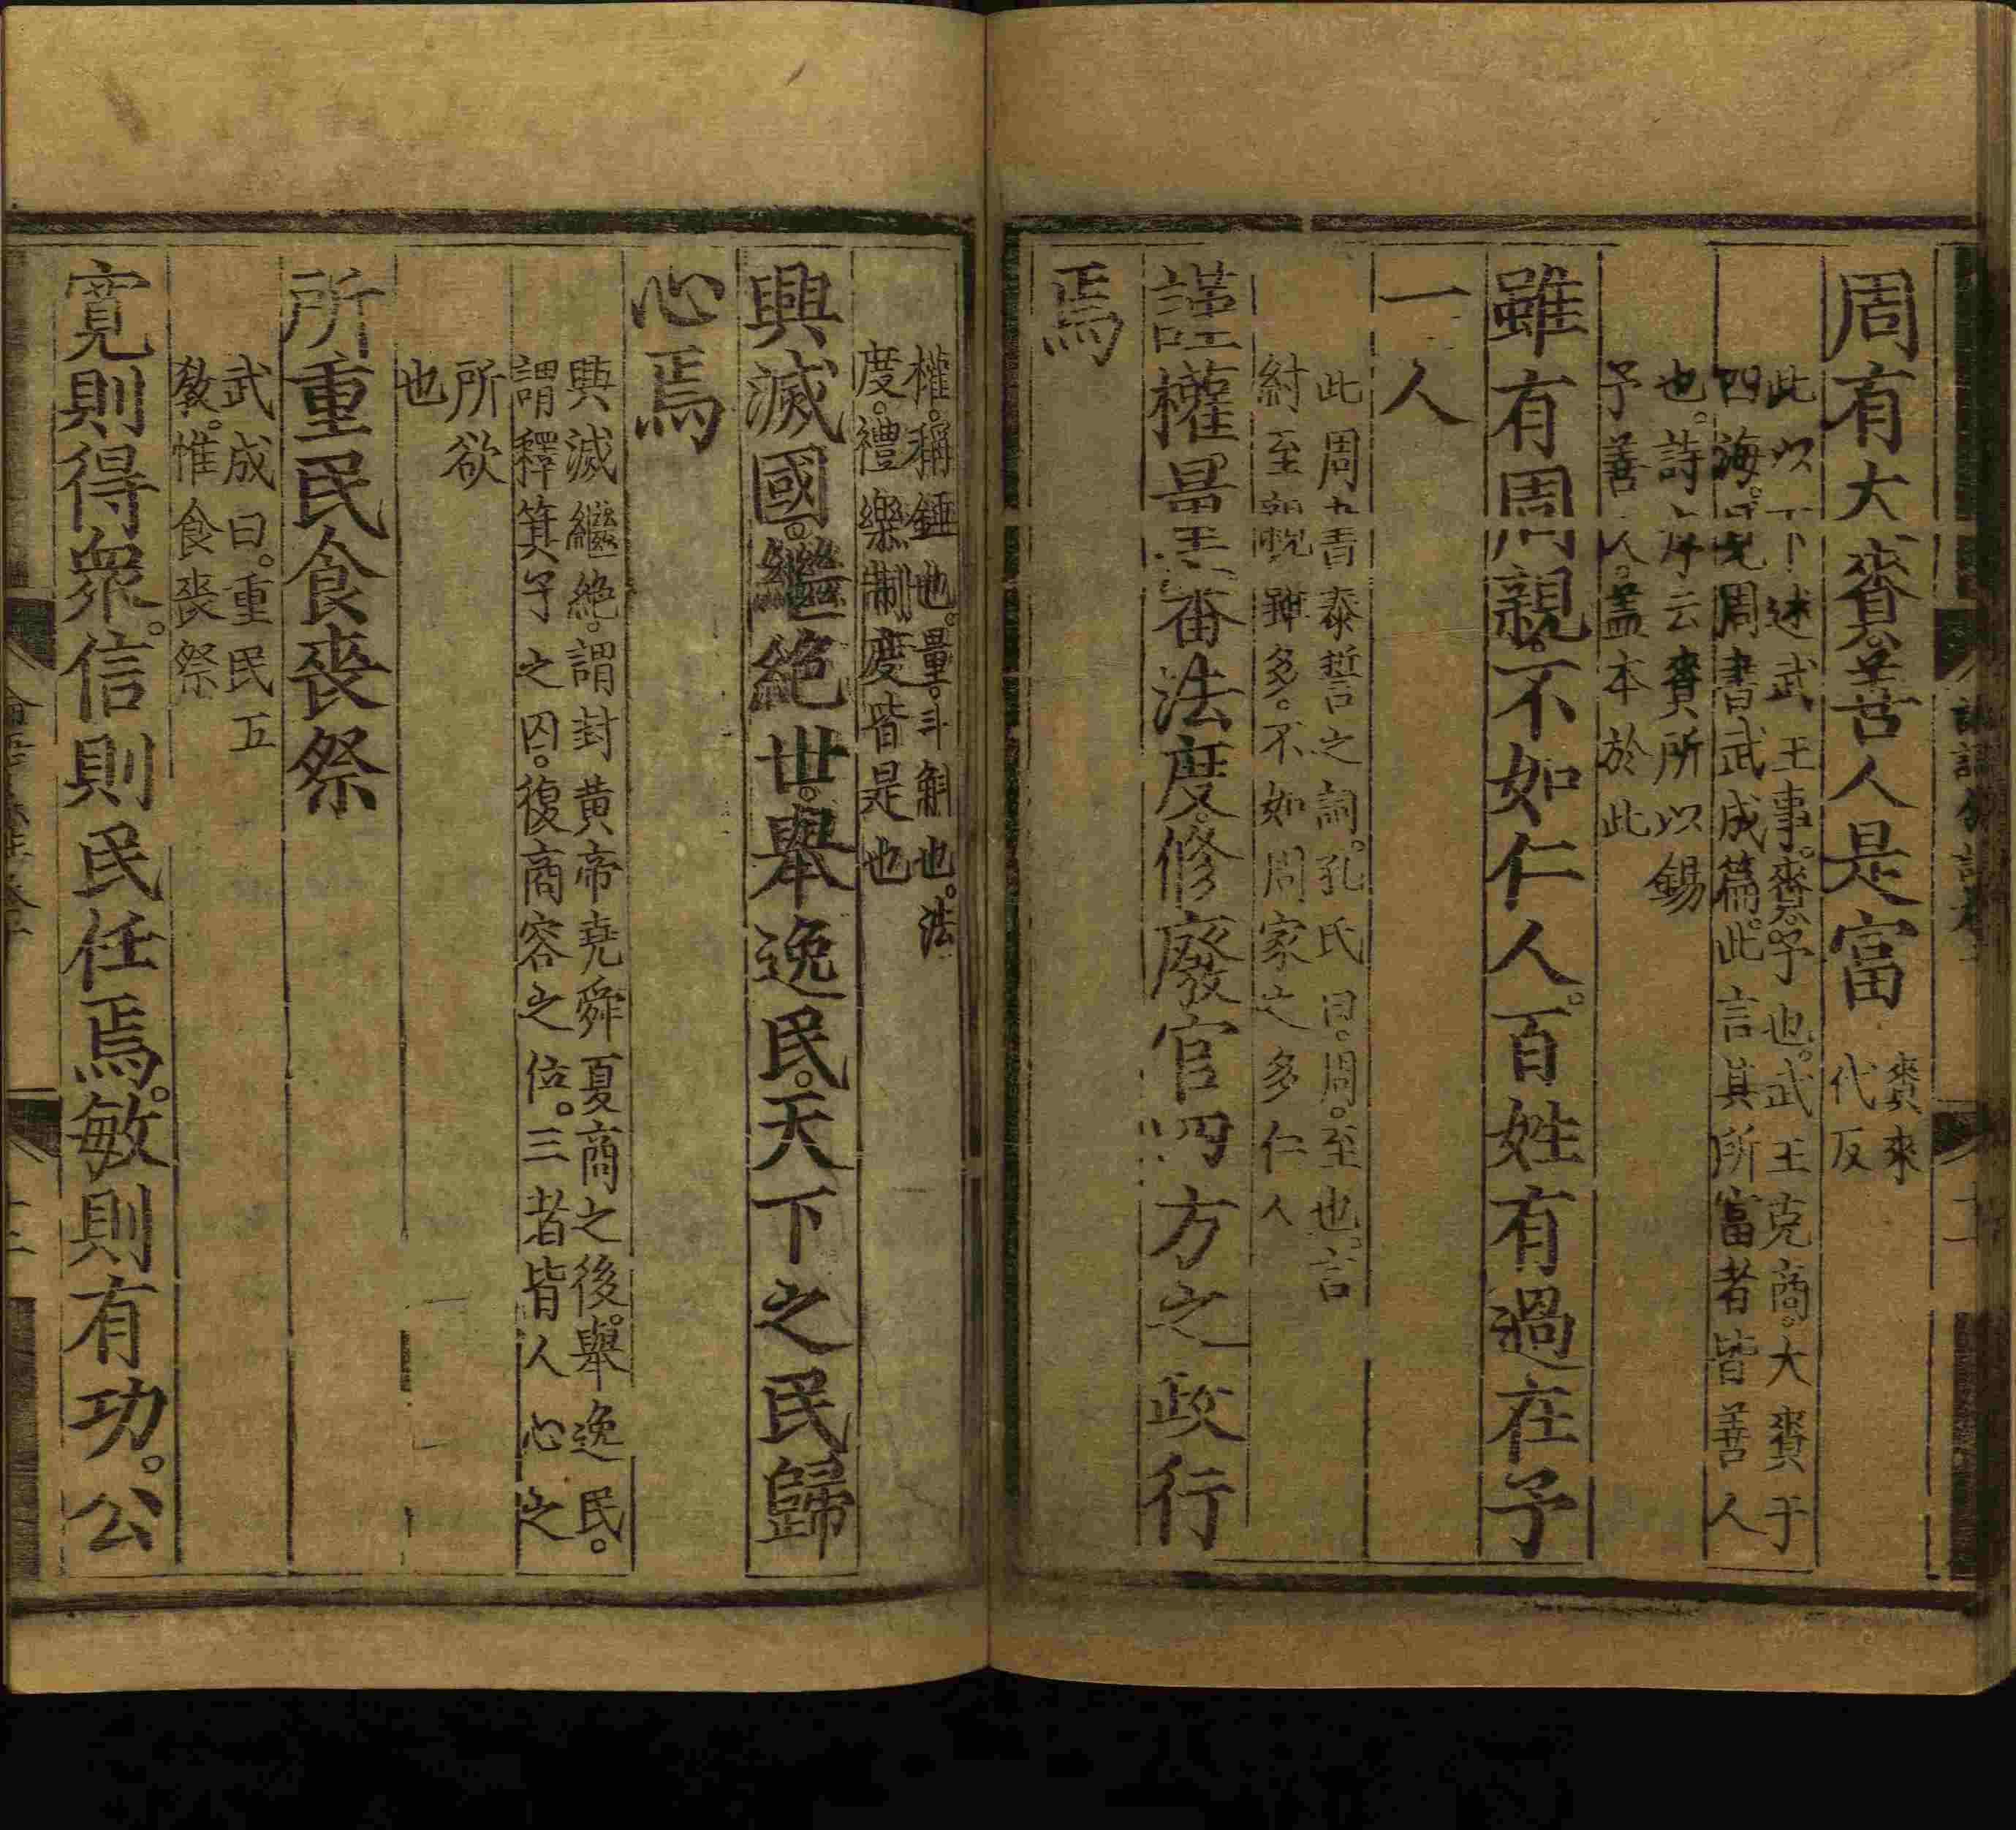 周有大賚。善人是富 賚來
代反
此以下述武王事。賚。予也。武王克商。大賚于
四海。見周書武成篇。此言其所富者皆善人
也。詩序云賚所以錫
予善人。蓋本於此
雖有周親。不如仁人。百姓有過在予
一人
此周書泰誓之詞。孔氏曰。周。至也。言
紂至親雖多。不如周家之多仁人
謹權量審法度。修廢官四方之政行
焉
權。稱錘也。量。斗斛也。法
度。禮樂制度皆是也
興滅國。繼絶世。舉逸民。天下之民歸
心焉
興滅繼絶。謂封黄帝堯舜夏商之後。舉逸民。
謂釋箕子之囚。復商容之位。三者皆人心之
所欲
也
所重民食喪祭
武成曰。重民五
敎。惟食喪祭
寛則得衆。信則民任焉。敏則有功。公